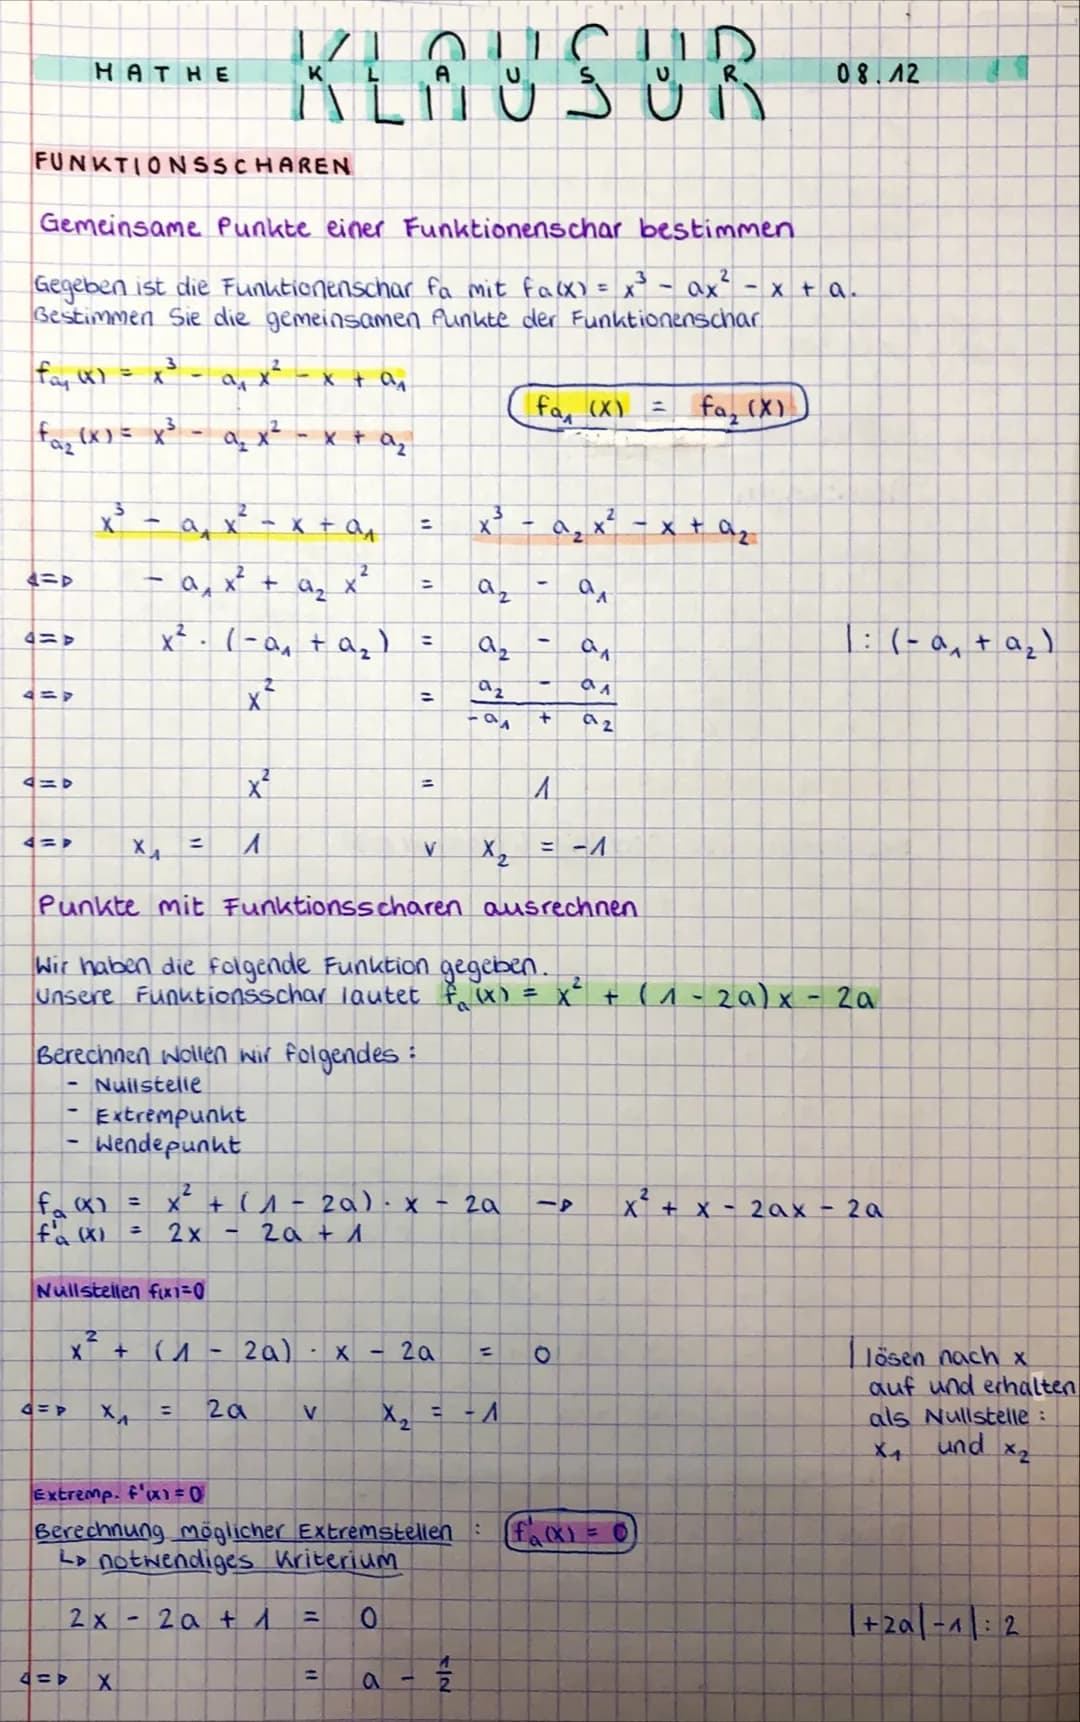 MATHE KLAUSUR 08.12
FUNKTIONSSCHAREN
Gemeinsame Punkte einer Funktionenschar bestimmen
Gegeben ist die Funktionenschar fa mit fa(x) = x³ - ax² - x + a.
Bestimmen Sie die gemeinsamen Punkte der Funktionenschar.
fa₁(x) = x³ - a₁x² - x + a₁
fa₁(x) = fa₂(x)
fa₂(x) = x³ - a₂x² - x + a₂
x³ - a₁x² - x + a₁ = x³ - a₂x² - x + a₂
<=> - a₁x² + a₂x² = a₂ - a₁
<=> x² · (-a₁ + a₂) = a₂ - a₁ | : (-a₁ + a₂)
<=> x² = (a₂ - a₁)/(-a₁ + a₂)
<=> x² = 1
<=> x₁ = 1 v x₂ = -1
Punkte mit Funktionsscharen ausrechnen
Wir haben die folgende Funktion gegeben.
Unsere Funktionsschar lautet fa(x) = x² + (1 - 2a)x - 2a
Berechnen wollen wir folgendes:
- Nullstelle
- Extrempunkt
- Wendepunkt
fa(x) = x² + (1 - 2a) · x - 2a -> x² + x - 2ax - 2a
f'a(x) = 2x - 2a + 1
Nullstellen f(x)=0
x² + (1 - 2a) · x - 2a = 0 | lösen nach x
auf und erhalten
<=> x₁ = 2a v x₂ = -1 als Nullstelle:
x₁ und x₂
Extremp. f'(x)=0
Berechnung möglicher Extremstellen : f'a(x) = 0
↳ notwendiges Kriterium
2x - 2a + 1 = 0 |+2a|-1|: 2
<=> x = a - 1/2